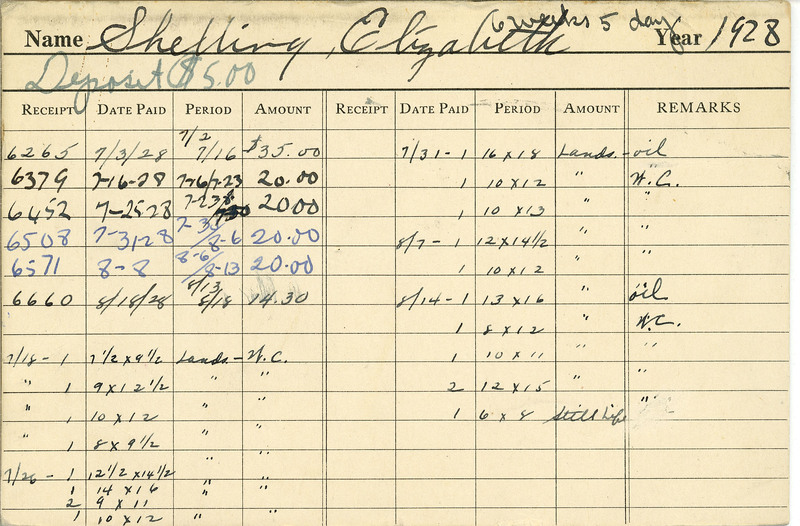 Name Shefling, Elizabeth 6 weeks 5 days Year 1928
Deposit $5.00
RECEIPT DATE PAID PERIOD AMOUNT RECEIPT DATE PAID PERIOD AMOUNT REMARKS
6265 7/3/28 7/2 7/16 $35.00 7/31-1 16 x 18 Lands.- oil
6379 7-16-28 7-16/7-23 20.00 1 10 x 12 " W.C.
6452 7-25 28 7-23 20 00 1 10 x 13 " "
6508 7-31 28 7-30/8-6 20.00 8/7-1 12 x 14 1/2 " "
6571 8-8 8-6/8-13 20.00 1 10 x 12 " "
6660 8/18/28 8/13 8/18 14.30 8/14-1 13 x 16 " oil
1 8 x 12 " W.C.
7/18-1 7 1/2 x 9 1/2 Lands.- W.C. 1 10 x 11 " "
" 1 9 x 12 1/2 " " 2 12 x 15 " "
" 1 10 x 12 " " 1 6 x 8 Still Life
" 1 8 x 9 1/2 " "
7/26-1 12 1/2 x 14 1/2 " "
1 14 x 16 " "
2 9 x 11 " "
1 10 x 12 " "